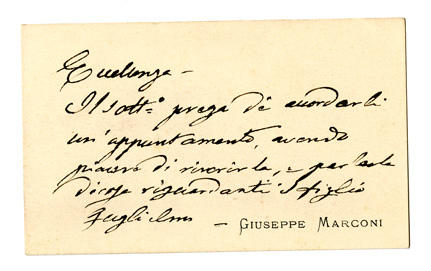 Eccellenza –
Il sott.º prega di accordarli
un'appuntamento, avendo
piacere di riverirla, e parlarle
di cose riguardanti il figlio
Guglielmo
– GIUSEPPE MARCONI